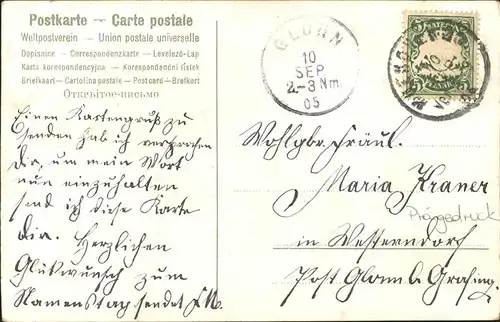 Postkarte — Carte postale
Weltpostverein — Union postale universelle
Dopisnice - Correspondenzkarte - Levelező-Lap
Karta korespondencyjna - Korespondenční lístek
Briefkaart - Cartolina postale - Postcard - Brefkort
Открытое письмо
GLONN
10
SEP
2-3 Nm.
05
BAYERN
Einen Kartengruß zu
senden hab ich versprochen
Dir, um mein Wort
nun einzuhalten
send ich diese Karte
Dir. Herzlichen
Glückwunsch zum
Namenstag sendet
Wohlgebr. Fräul.
Maria Kraner
Prägedruck
in Westerndorf
Post Glonn b. Grafing.